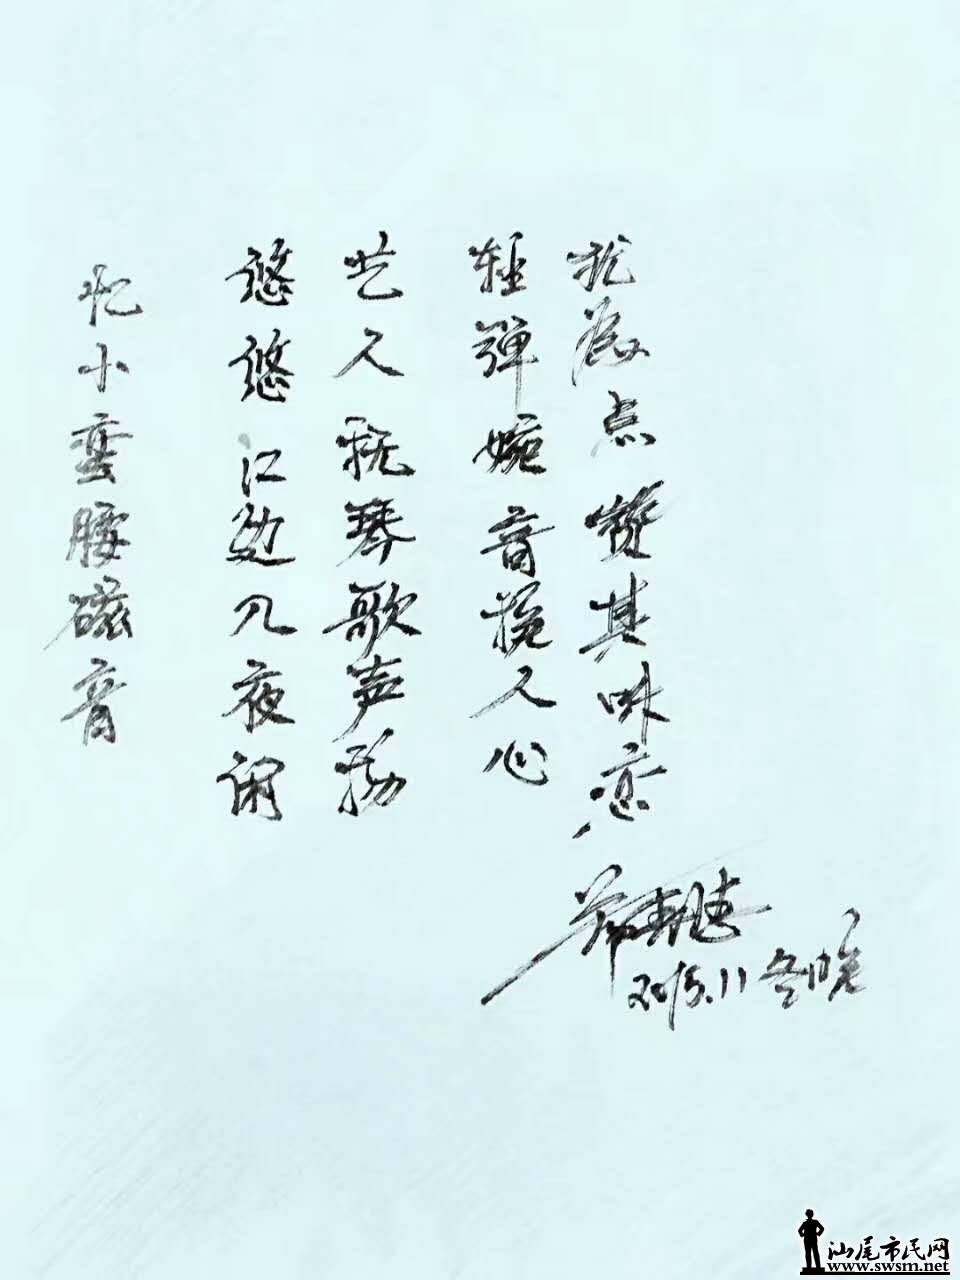 忆小蛮腰磁音
悠悠江边几夜闲
艺人抚琴歌声扬
轻弹婉音挽人心
我为点赞其味恋
2015.11 冬晚
汕尾市民网
www.swsm.net